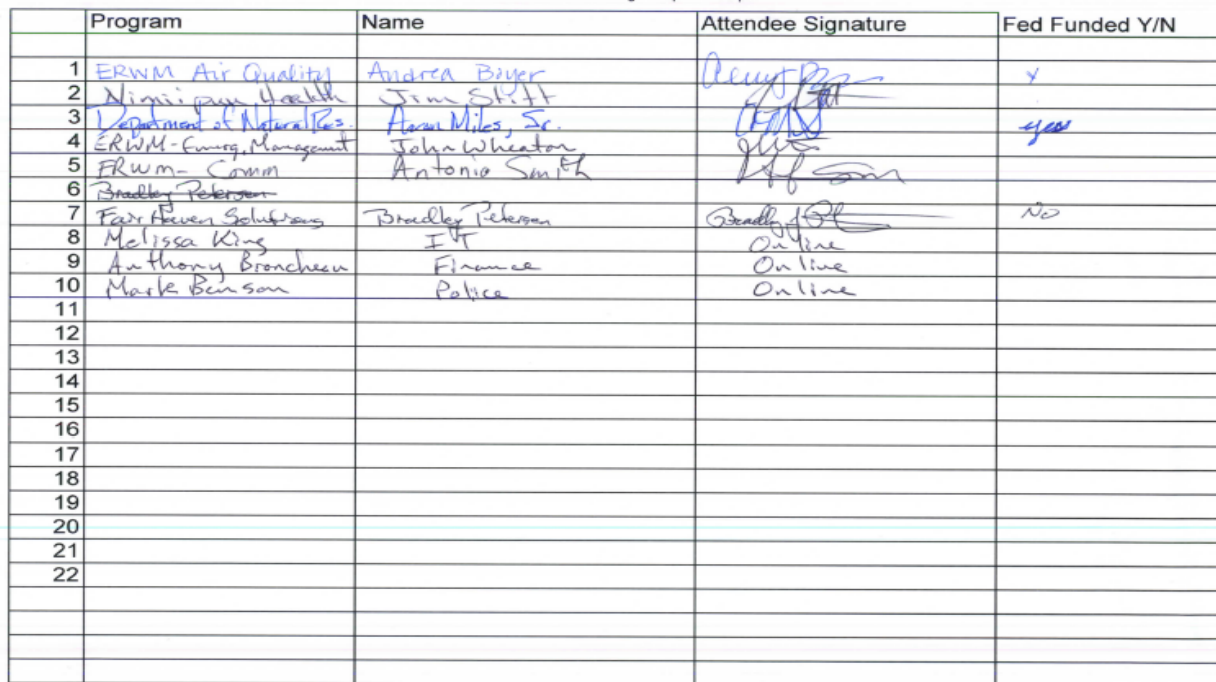 Program Name Attendee Signature Fed Funded Y/N
1 ERWM Air Quality Andrea Boyer Y
2 Nimiipuu Health Jim Stitt
3 Department of Natural Res. Aaron Miles, Sr. yes
4 ERWM-Emerg. Management John Wheaton
5 ERWM- Comm Antonio Smith
6 Bradley Peterson
7 Fair Haven Solutions Bradley Peterson No
8 Melissa King IT Online
9 Anthony Broncheau Finance Online
10 Mark Benson Police Online
11
12
13
14
15
16
17
18
19
20
21
22